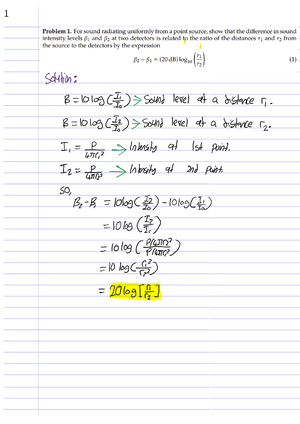 1
Problem 1. For sound radiating uniformly from a point source, show that the difference in sound
intensity levels β₁ and β₂ at two detectors is related to the ratio of the distances r₁ and r₂ from
the source to the detectors by the expression
β₂ − β₁ = (20 dB) log₁₀ (r₁/r₂) (1)
Solution:
B = 10 log (I₁/I₀) → Sound level at a distance r₁.
B = 10 log (I₂/I₀) → Sound level at a distance r₂.
I₁ = P/4πr₁² → Intensity at 1st point.
I₂ = P/4πr₂² → Intensity at 2nd point.
So,
B₂ - B₁ = 10 log (I₂/I₀) - 10 log (I₁/I₀)
= 10 log (I₂/I₁)
= 10 log (P/4πr₂² / P/4πr₁²)
= 10 log (r₁²/r₂²)
= 20 log [r₁/r₂]